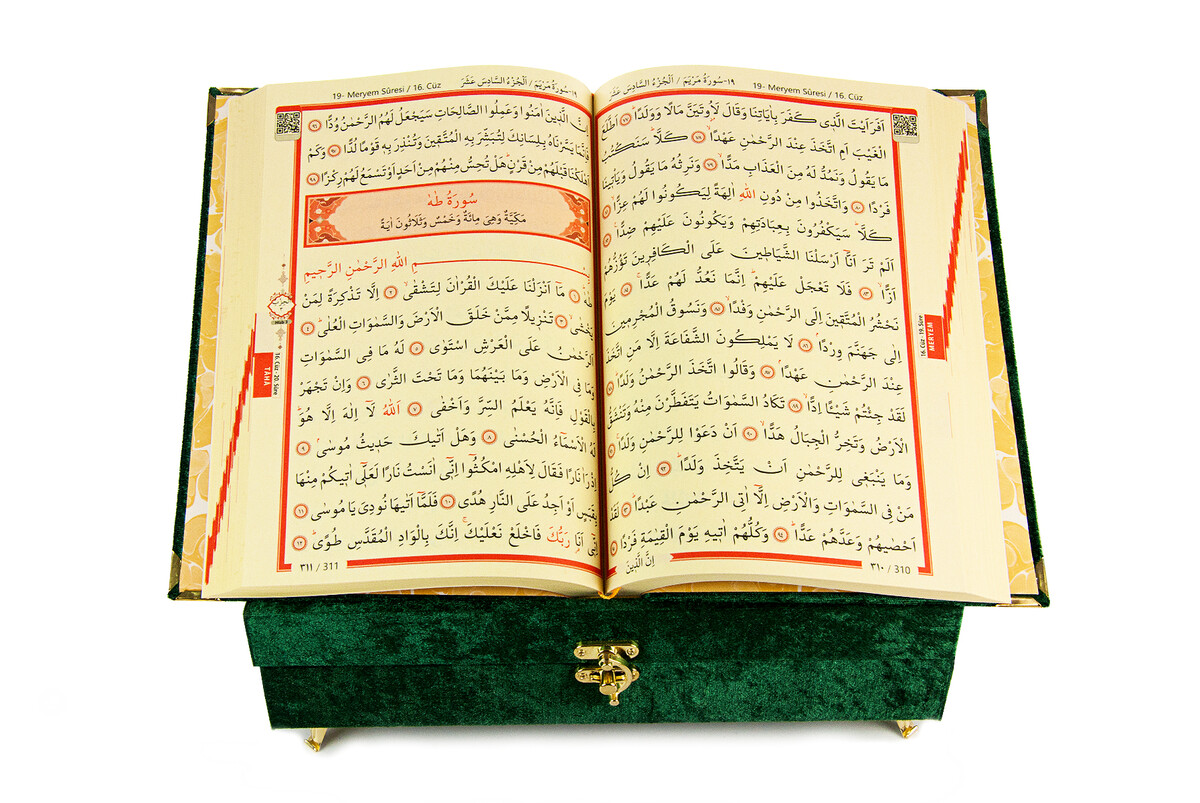 ١٩-سُورَةُ مَرْيَمَ / اَلْجُزْءُ السَّادِسَ عَشَرَ
19- Meryem Sûresi / 16. Cüz
اَفَرَاَيْتَ الَّذٖى كَفَرَ بِاٰيَاتِنَا وَقَالَ لَاُوتَيَنَّ مَالًا وَوَلَدًاؕ ﴿٧٧﴾ اَطَّلَعَ
الْغَيْبَ اَمِ اتَّخَذَ عِنْدَ الرَّحْمٰنِ عَهْدًاۙ ﴿٧٨﴾ كَلَّاؕ سَنَكْتُبُ
مَا يَقُولُ وَنَمُدُّ لَهُ مِنَ الْعَذَابِ مَدًّاۙ ﴿٧٩﴾ وَنَرِثُهُ مَا يَقُولُ وَيَأْتٖينَا
فَرْدًا ﴿٨٠﴾ وَاتَّخَذُوا مِنْ دُونِ اللّٰهِ اٰلِهَةً لِيَكُونُوا لَهُمْ عِزًّاۙ ﴿٨١﴾
كَلَّاؕ سَيَكْفُرُونَ بِعِبَادَتِهِمْ وَيَكُونُونَ عَلَيْهِمْ ضِدًّا۟ ﴿٨٢﴾
اَلَمْ تَرَ اَنَّٓا اَرْسَلْنَا الشَّيَاطٖينَ عَلَى الْكَافِرٖينَ تَؤُزُّهُمْ
اَزًّاۙ ﴿٨٣﴾ فَلَا تَعْجَلْ عَلَيْهِمْؕ اِنَّمَا نَعُدُّ لَهُمْ عَدًّاۚ ﴿٨٤﴾ يَوْمَ
نَحْشُرُ الْمُتَّقٖينَ اِلَى الرَّحْمٰنِ وَفْدًاۙ ﴿٨٥﴾ وَنَسُوقُ الْمُجْرِمٖينَ
اِلٰى جَهَنَّمَ وِرْدًاۢ ﴿٨٦﴾ لَا يَمْلِكُونَ الشَّفَاعَةَ اِلَّا مَنِ اتَّخَذَ
عِنْدَ الرَّحْمٰنِ عَهْدًاۢ ﴿٨٧﴾ وَقَالُوا اتَّخَذَ الرَّحْمٰنُ وَلَدًاؕ ﴿٨٨﴾
لَقَدْ جِئْتُمْ شَيْـًٔا اِدًّاۙ ﴿٨٩﴾ تَكَادُ السَّمٰوَاتُ يَتَفَطَّرْنَ مِنْهُ وَتَنْشَقُّ
الْاَرْضُ وَتَخِرُّ الْجِبَالُ هَدًّاۙ ﴿٩٠﴾ اَنْ دَعَوْا لِلرَّحْمٰنِ وَلَدًاۚ ﴿٩١﴾
وَمَا يَنْبَغٖى لِلرَّحْمٰنِ اَنْ يَتَّخِذَ وَلَدًاؕ ﴿٩٢﴾ اِنْ كُلُّ
مَنْ فِى السَّمٰوَاتِ وَالْاَرْضِ اِلَّٓا اٰتِى الرَّحْمٰنِ عَبْدًاؕ ﴿٩٣﴾ لَقَدْ
اَحْصٰيهُمْ وَعَدَّهُمْ عَدًّاؕ ﴿٩٤﴾ وَكُلُّهُمْ اٰتٖيهِ يَوْمَ الْقِيٰمَةِ فَرْدًا ﴿٩٥﴾
اِنَّ الَّذٖينَ
٣١٠ / 310
16. Cüz - 19. Sûre
MERYEM
19- Meryem Sûresi / 16. Cüz
١٩-سُورَةُ مَرْيَمَ / اَلْجُزْءُ السَّادِسَ عَشَرَ
اِنَّ الَّذٖينَ اٰمَنُوا وَعَمِلُوا الصَّالِحَاتِ سَيَجْعَلُ لَهُمُ الرَّحْمٰنُ وُدًّا ﴿٩٦﴾
فَاِنَّمَا يَسَّرْنَاهُ بِلِسَانِكَ لِتُبَشِّرَ بِهِ الْمُتَّقٖينَ وَتُنْذِرَ بِهٖ قَوْمًا لُدًّا ﴿٩٧﴾ وَكَمْ
اَهْلَكْنَا قَبْلَهُمْ مِنْ قَرْنٍؕ هَلْ تُحِسُّ مِنْهُمْ مِنْ اَحَدٍ اَوْ تَسْمَعُ لَهُمْ رِكْزًا ﴿٩٨﴾
سُورَةُ طٰهٰ
مَكِّيَّةٌ وَهِىَ مِائَةٌ وَخَمْسٌ وَثَلَاثُونَ اٰيَةً
بِسْمِ اللّٰهِ الرَّحْمٰنِ الرَّحٖيمِ
طٰهٰۜ ﴿١﴾ مَٓا اَنْزَلْنَا عَلَيْكَ الْقُرْاٰنَ لِتَشْقٰىۙ ﴿٢﴾ اِلَّا تَذْكِرَةً لِمَنْ
يَخْشٰىۙ ﴿٣﴾ تَنْزٖيلًا مِمَّنْ خَلَقَ الْاَرْضَ وَالسَّمٰوَاتِ الْعُلٰىؕ ﴿٤﴾
اَلرَّحْمٰنُ عَلَى الْعَرْشِ اسْتَوٰى ﴿٥﴾ لَهُ مَا فِى السَّمٰوَاتِ
وَمَا فِى الْاَرْضِ وَمَا بَيْنَهُمَا وَمَا تَحْتَ الثَّرٰى ﴿٦﴾ وَاِنْ تَجْهَرْ
بِالْقَوْلِ فَاِنَّهُ يَعْلَمُ السِّرَّ وَاَخْفٰى ﴿٧﴾ اَللّٰهُ لَٓا اِلٰهَ اِلَّا هُوَؕ
لَهُ الْاَسْمَٓاءُ الْحُسْنٰى ﴿٨﴾ وَهَلْ اَتٰيكَ حَدٖيثُ مُوسٰىۘ ﴿٩﴾
اِذْ رَاٰ نَارًا فَقَالَ لِاَهْلِهِ امْكُثُٓوا اِنّٖٓى اٰنَسْتُ نَارًا لَعَلّٖٓى اٰتٖيكُمْ مِنْهَا
بِقَبَسٍ اَوْ اَجِدُ عَلَى النَّارِ هُدًى ﴿١٠﴾ فَلَمَّٓا اَتٰيهَا نُودِىَ يَا مُوسٰىؕ ﴿١١﴾
اِنّٖٓى اَنَا۬ رَبُّكَ فَاخْلَعْ نَعْلَيْكَۚ اِنَّكَ بِالْوَادِ الْمُقَدَّسِ طُوًىؕ ﴿١٢﴾
٣١١ / 311
16. Cüz - 20. Sûre
TÂHÂ